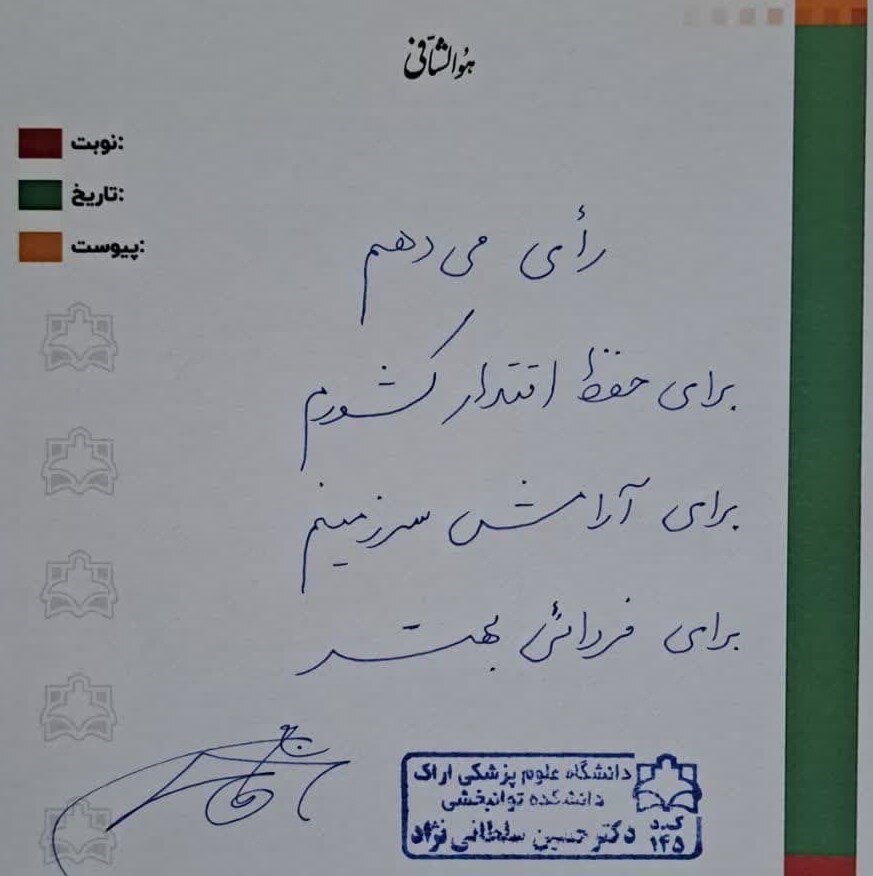 هوالشافی
نوبت:
تاریخ:
پیوست:
رأی می دهم
برای حفظ اقتدار کشورم
برای آرامش سرزمینم
برای فردائی بهتر
دانشگاه علوم پزشکی اراک
دانشکده توانبخشی
دکتر حسین سلطانی نژاد
کد
۱۴۵